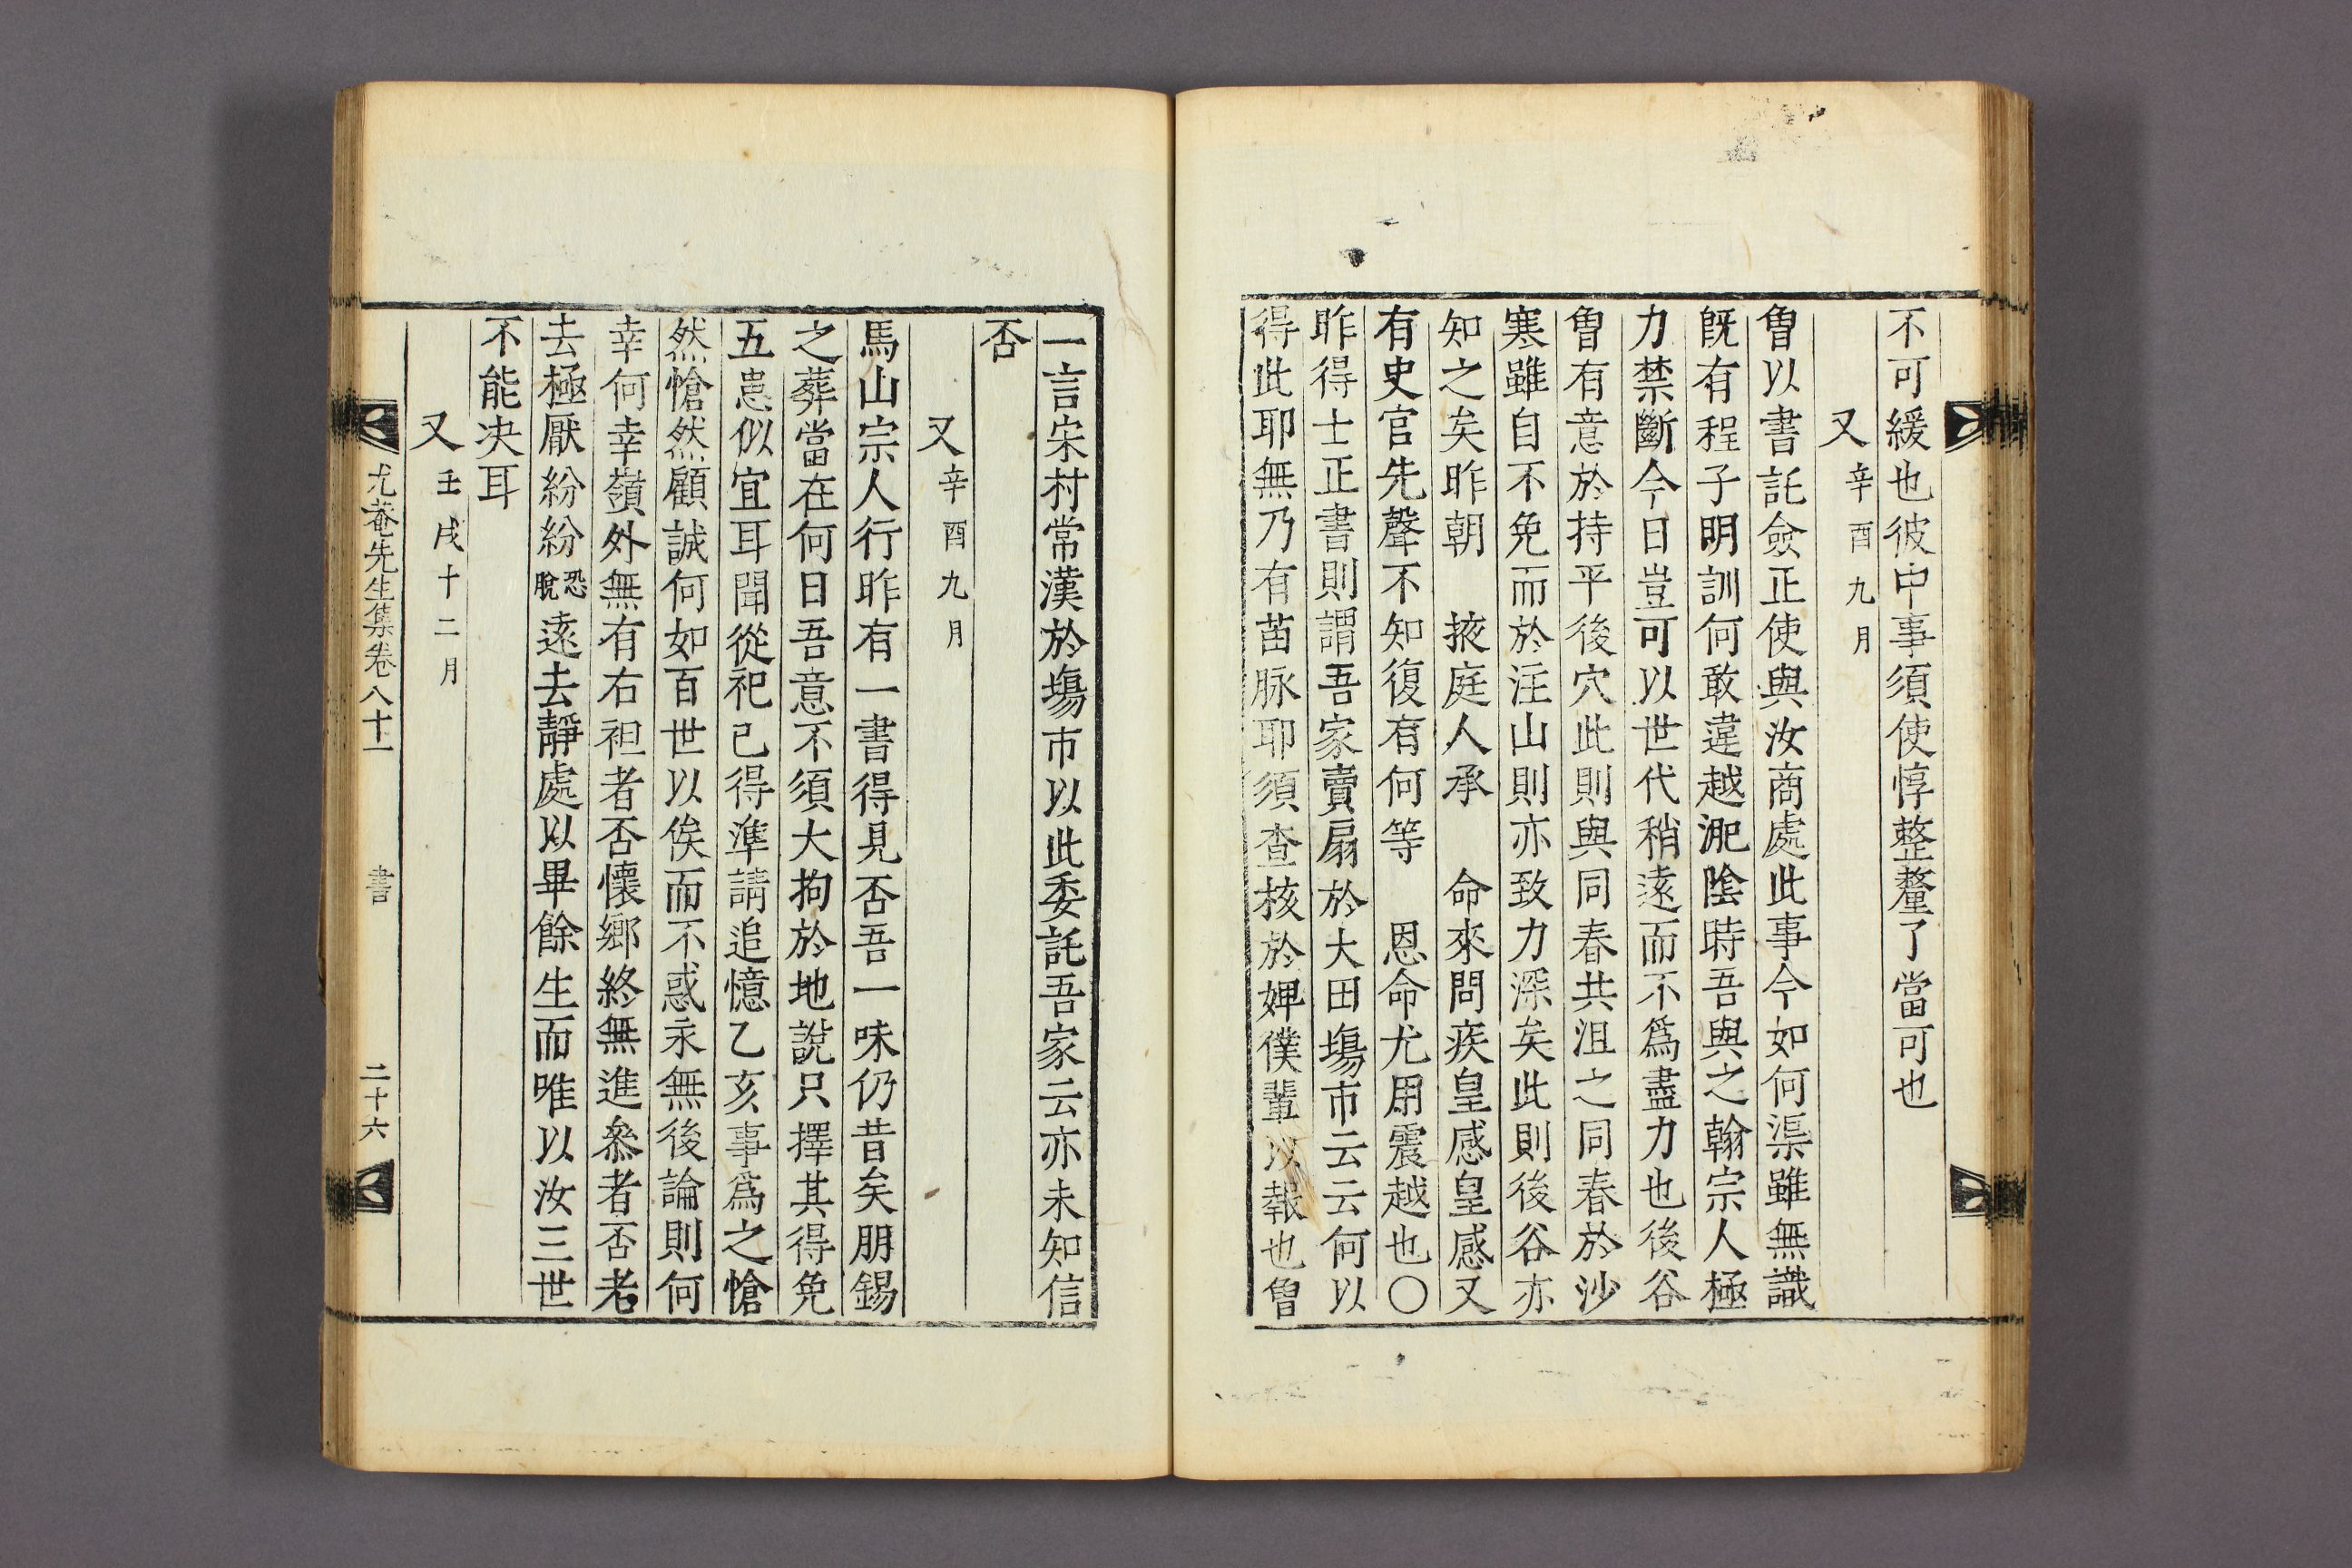 不可緩也彼中事須使惇整釐了當可也
又辛酉九月
曾以書託僉正使與汝商處此事今如何渠雖無識
旣有程子明訓何敢違越淝陰時吾與之翰宗人極
力禁斷今日豈可以世代稍遠而不爲盡力也後谷
曾有意於持平後穴此則與同春共沮之同春於沙
寒雖自不免而於注山則亦致力深矣此則後谷亦
知之矣昨朝 掖庭人承 命來問疾皇感皇感又
有史官先聲不知復有何等 恩命尤用震越也〇
昨得士正書則謂吾家賣扇於大田塲市云云何以
得此耶無乃有苗脉耶須查核於婢僕輩以報也曾
一言宋村常漢於塲市以此委託吾家云亦未知信
否
又辛酉九月
馬山宗人行昨有一書得見否吾一味仍昔矣朋錫
之葬當在何日吾意不須大拘於地說只擇其得免
五患似宜耳聞從祀已得準請追憶乙亥事爲之愴
然愴然顧誠何如百世以俟而不惑永無後論則何
幸何幸嶺外無有右袒者否懷鄕終無進叅者否老
去極厭紛紛恐脫遠去靜處以畢餘生而唯以汝三世
不能决耳
又壬戌十二月
尤菴先生集卷八十一 書 二十六